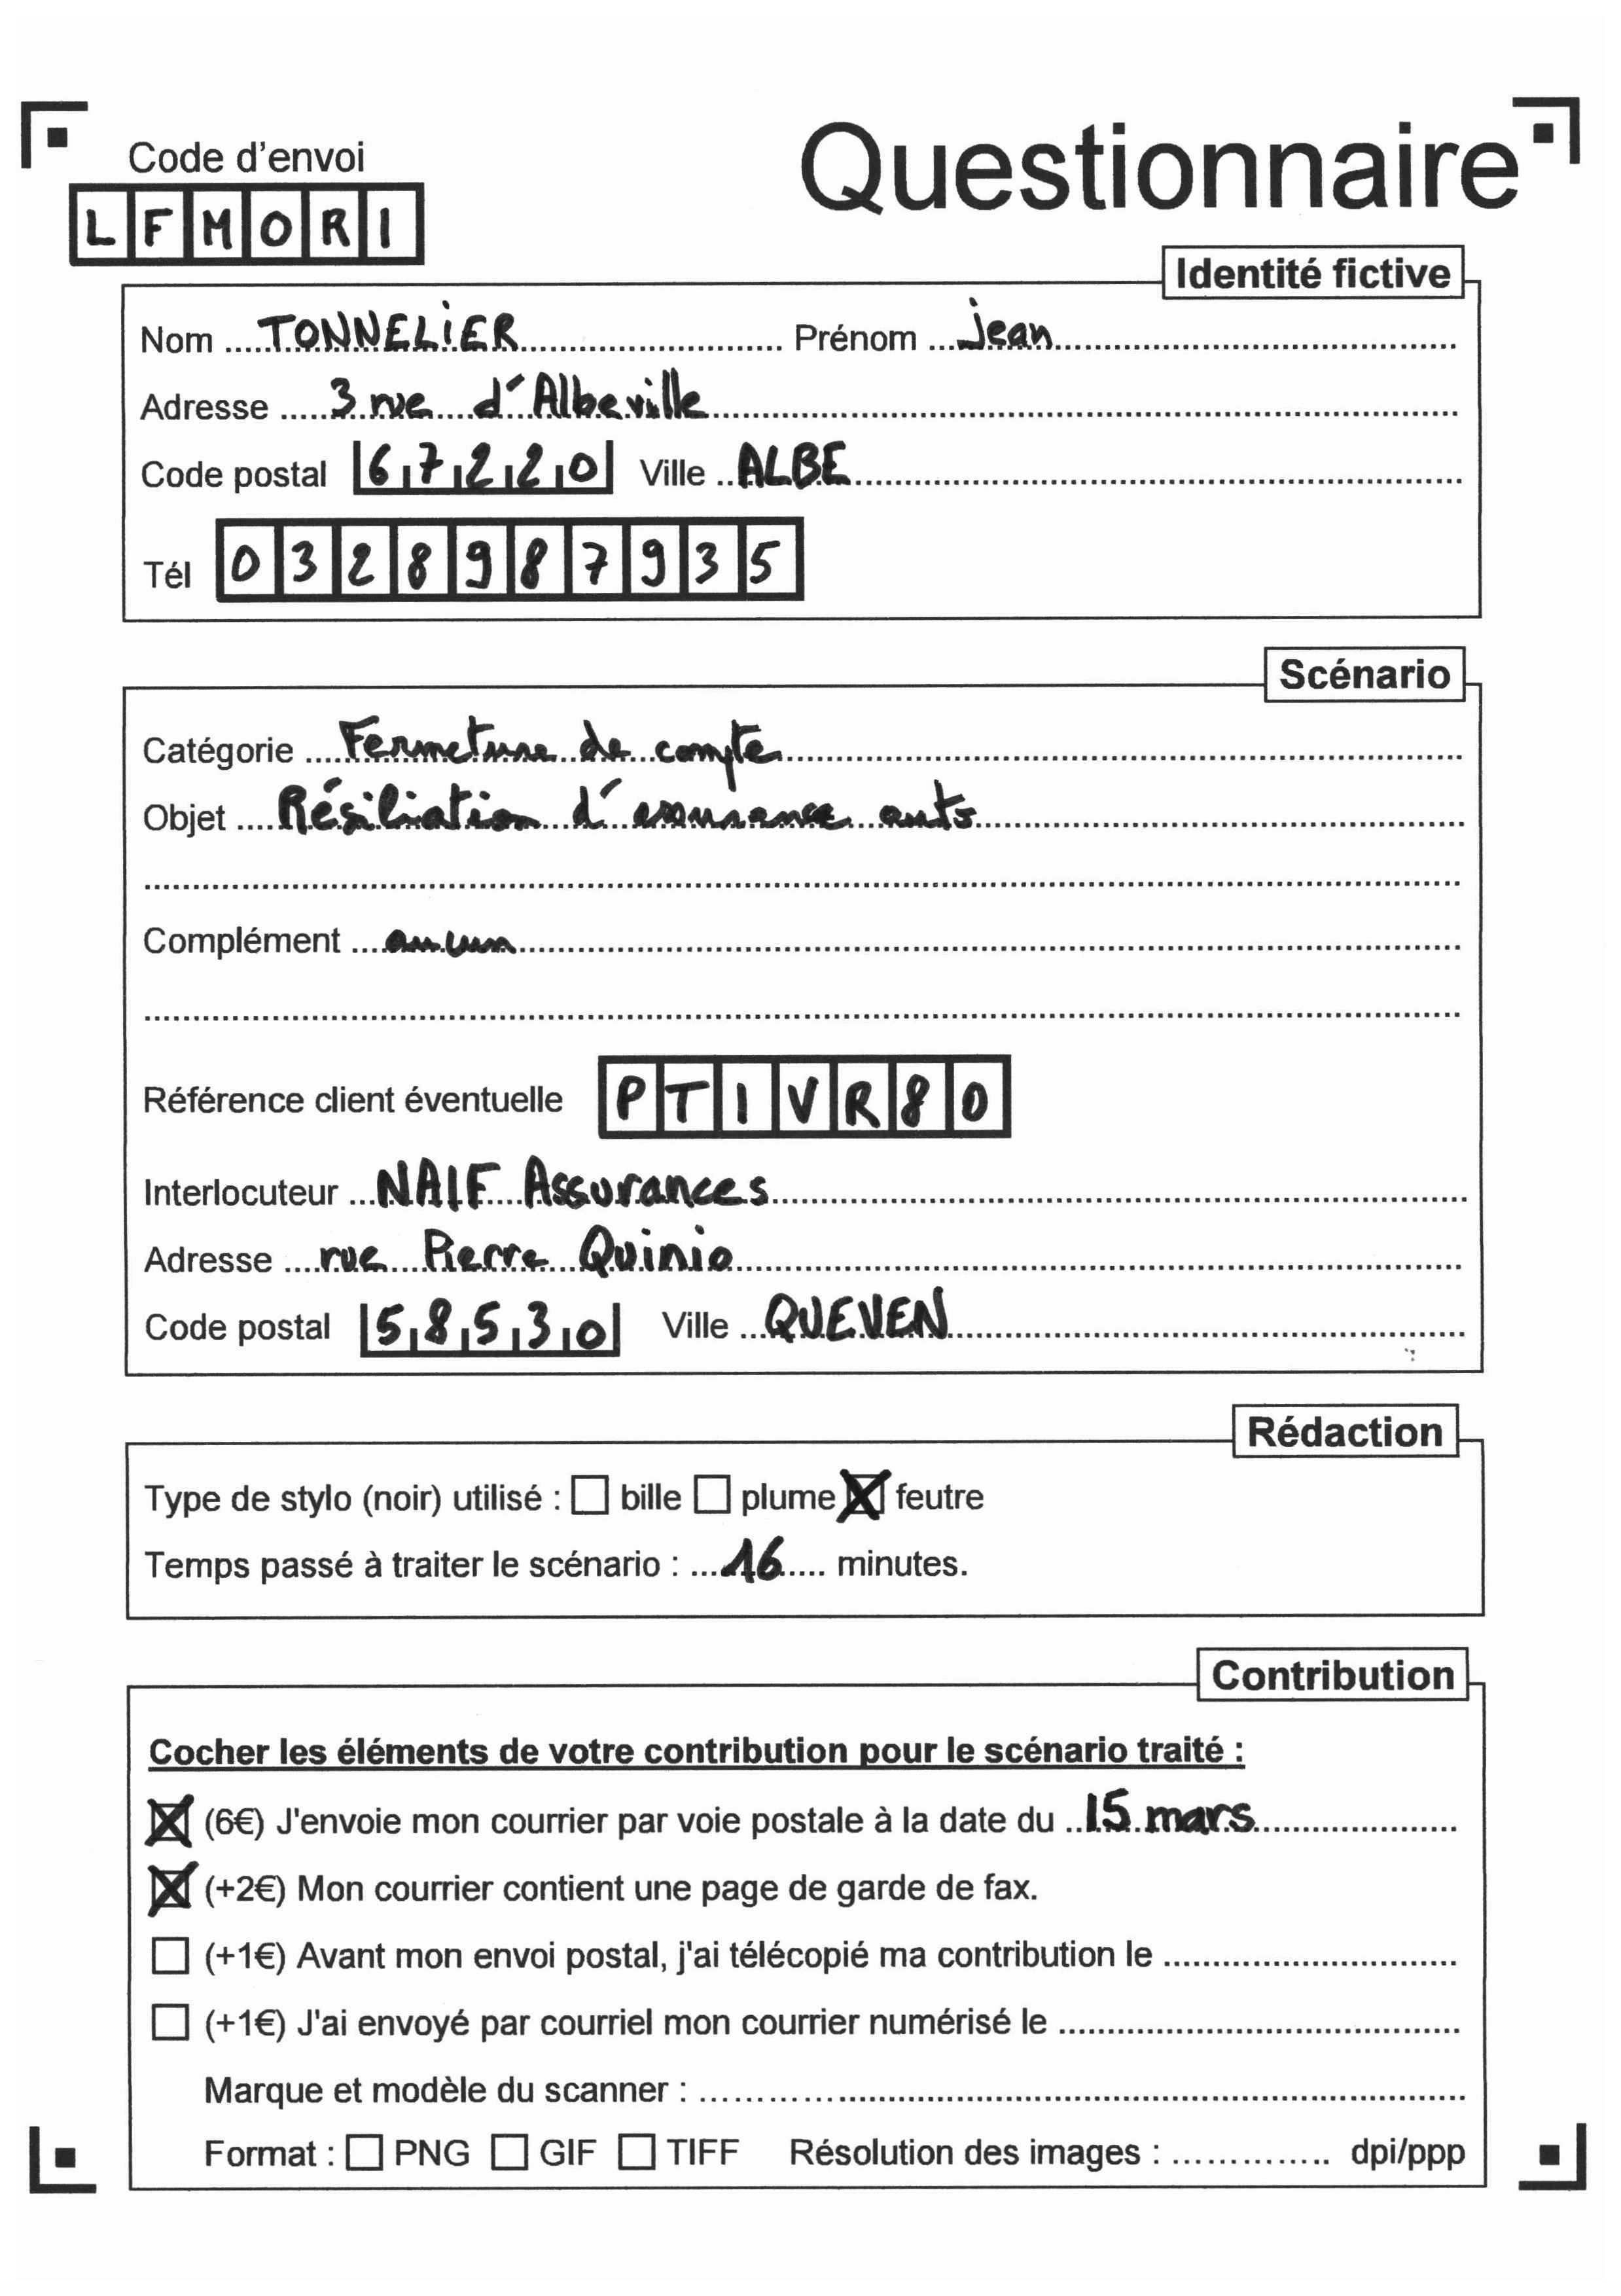 Code d'envoi
Questionnaire
LFMORI
Identité fictive
Nom TONNELIER Prénom Jean
Adresse 3 rue d'Albeville
Code postal 67220 Ville ALBE
Tél 0328987935
Scénario
Catégorie Fermeture de compte
Objet Résiliation d'assurance auto
Complément aucun
Référence client éventuelle PTIVR80
Interlocuteur NAIF Assurances
Adresse rue Pierre Quinio
Code postal 58530 Ville QUEVEN
Rédaction
Type de stylo (noir) utilisé : bille plume feutre
Temps passé à traiter le scénario : 16 minutes.
Contribution
Cocher les éléments de votre contribution pour le scénario traité :
(6€) J'envoie mon courrier par voie postale à la date du 15 mars
(+2€) Mon courrier contient une page de garde de fax.
(+1€) Avant mon envoi postal, j'ai télécopié ma contribution le
(+1€) J'ai envoyé par courriel mon courrier numérisé le
Marque et modèle du scanner :
Format : PNG GIF TIFF Résolution des images : dpi/ppp